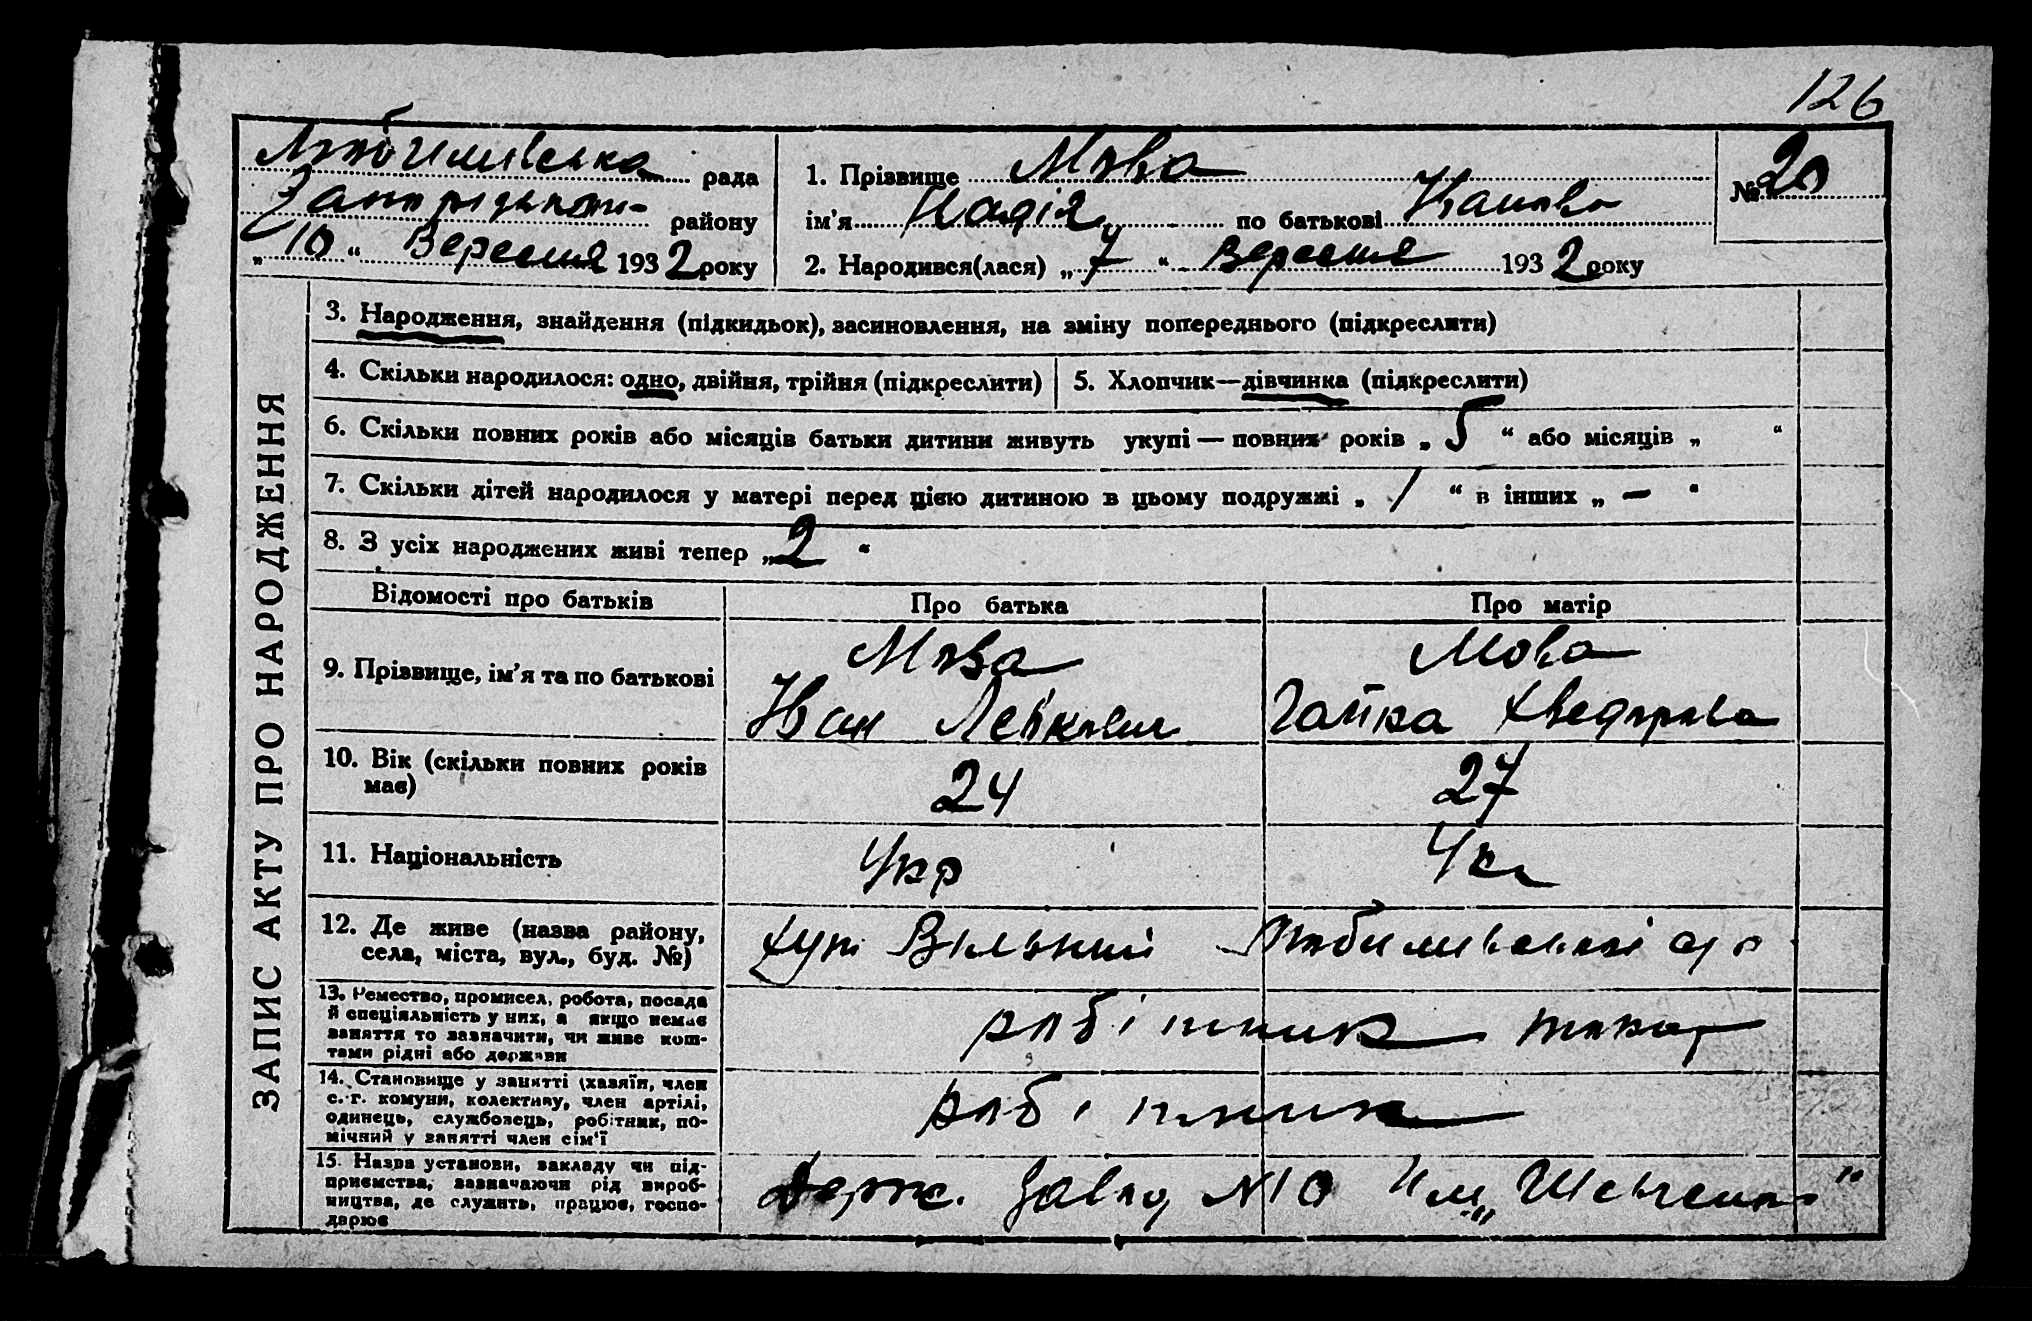 126
Любимівська рада
району
„10“ Вересня 1932 року
1. Прізвище Мова
ім’я Надія по батькові Іванова
2. Народився(лася) „7“ Вересня 1932 року
№ 20
ЗАПИС АКТУ ПРО НАРОДЖЕННЯ
3. Народження, знайдення (підкидьок), засиновлення, на зміну попереднього (підкреслити)
4. Скільки народилося: одно, двійня, трійня (підкреслити)
5. Хлопчик—дівчинка (підкреслити)
6. Скільки повних років або місяців батьки дитини живуть укупі — повних років „5“ або місяців „ “
7. Скільки дітей народилося у матері перед цією дитиною в цьому подружжі „1“ в інших „—“
8. З усіх народжених живі тепер „2“
Відомості про батьків
Про батька
Про матір
9. Прізвище, ім’я та по батькові
Мова
Іван
Мова
Хведорова
10. Вік (скільки повних років
має)
24
27
11. Національність
Укр
Укр
12. Де живе (назва району,
села, міста, вул., буд. №)
хут Вільний Любимівської с/р
13. Ремество, промисел, робота, посада
й спеціяльність у них, а якщо немає
заняття то зазначити, чи живе кош-
тами рідні або держави
робітник
14. Становище у занятті (хазяїн, член
с.-г. комуни, колективу, член артілі,
одинець, службовець, робітник, по-
мічний у занятті член сім’ї
робітник
15. Назва установи, закладу чи під-
приємства, зазначаючи рід вироб-
ництва, де служить, працює, госпо-
дарює
Держ. завод №10 Им „Шевченко“